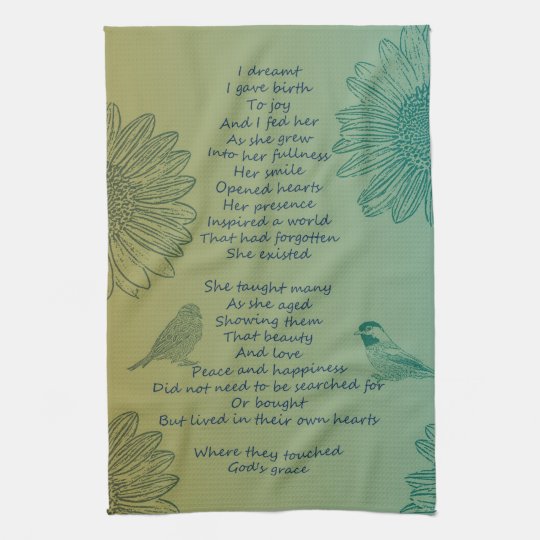 I dreamt
I gave birth
To joy
And I fed her
As she grew
Into her fullness
Her smile
Opened hearts
Her presence
Inspired a world
That had forgotten
She existed
She taught many
As she aged
Showing them
That beauty
And love
Peace and happiness
Did not need to be searched for
Or bought
But lived in their own hearts
Where they touched
God's grace